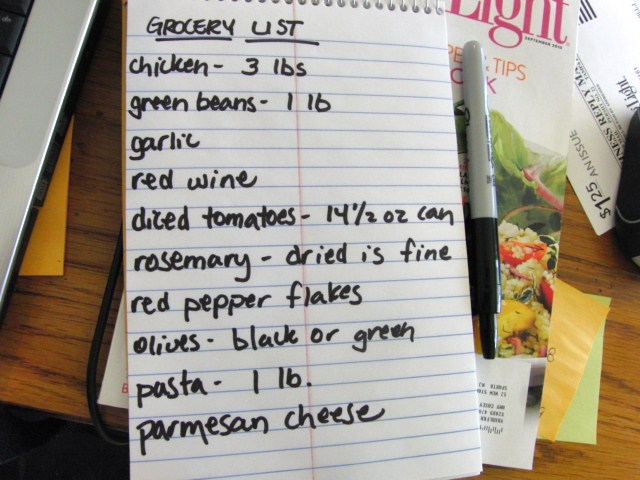 GROCERY LIST
chicken - 3 lbs
green beans - 1 lb
garlic
red wine
diced tomatoes - 14 1/2 oz can
rosemary - dried is fine
red pepper flakes
olives - black or green
pasta - 1 lb.
parmesan cheese
Light
SEPTEMBER 2010
TIPS
$1.25 AN ISSUE